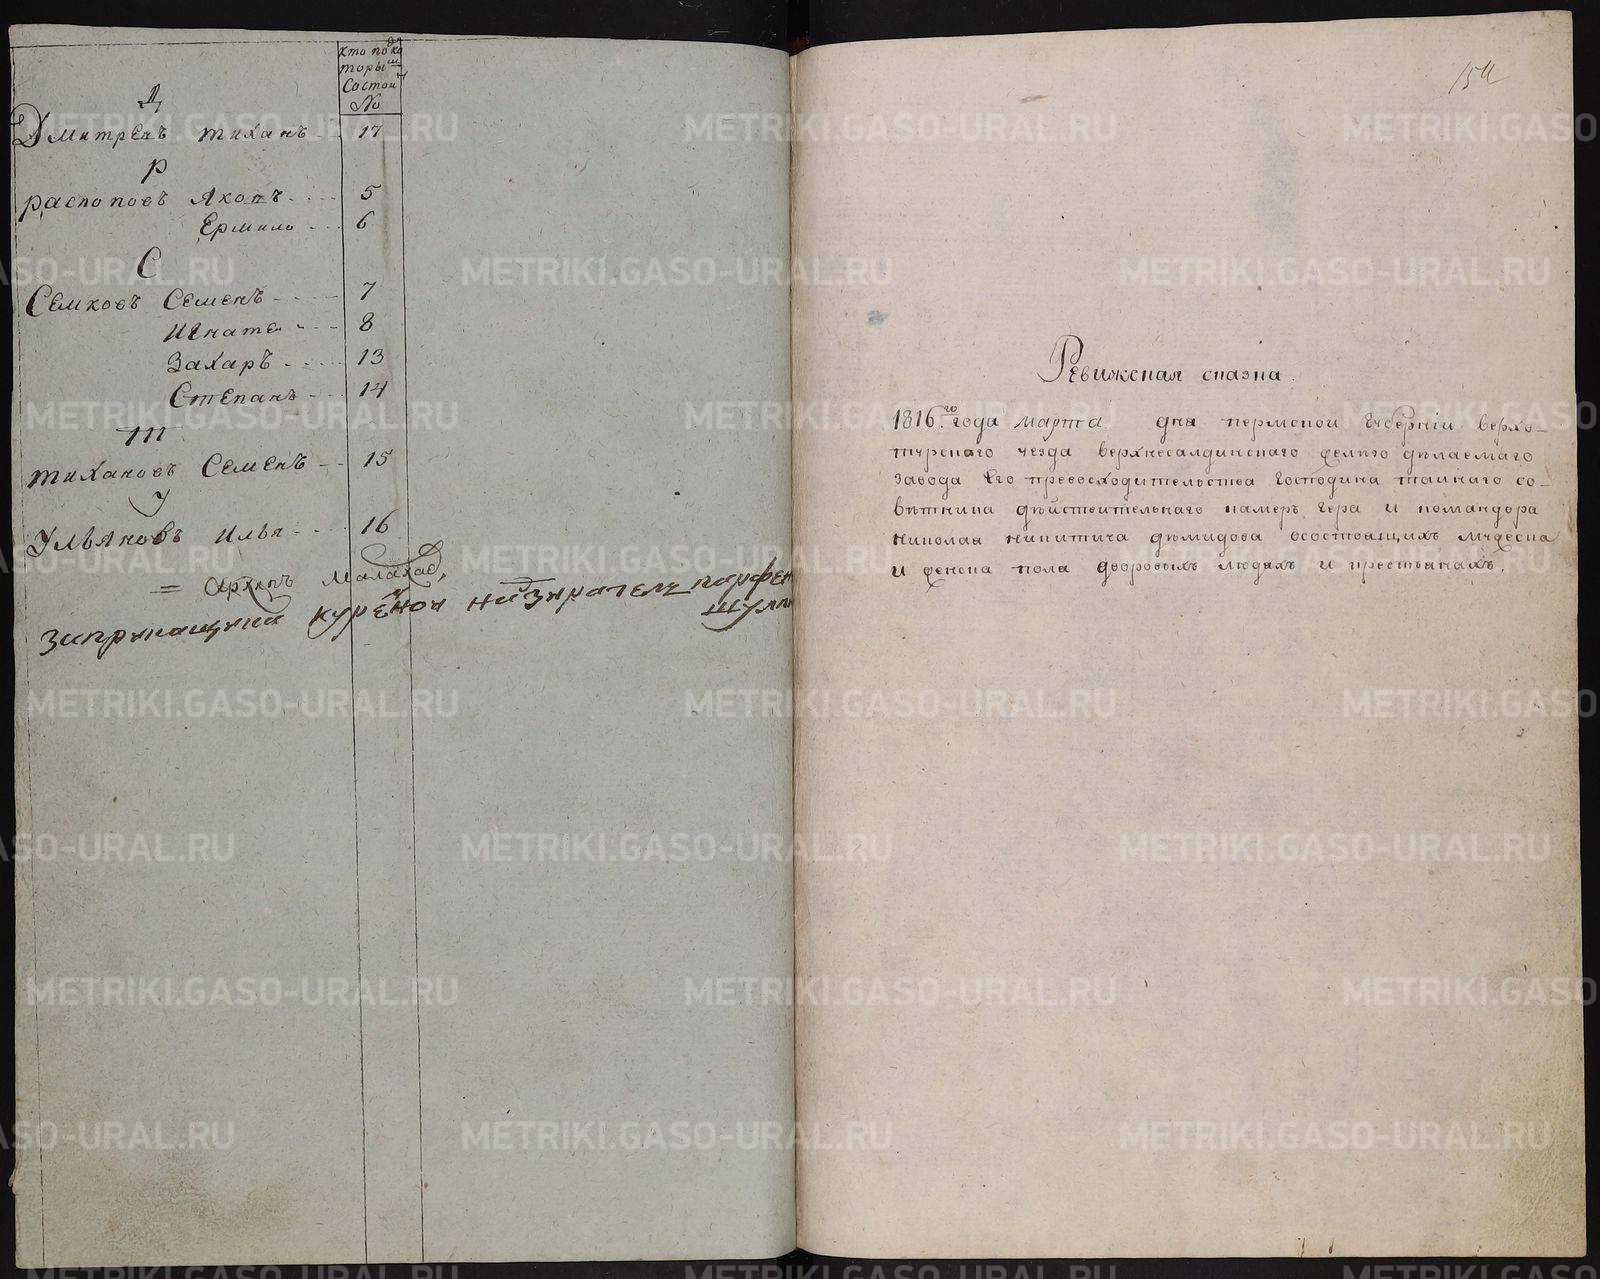 кто подко
торы​мъ
Состои
№
Д
Дмитреевъ тиханъ 17
Р
располовъ Яковъ 5
Ермило 6
С
Семковъ Семенъ 7
Игнате 8
Захаръ 13
Степанъ 14
Т
тихановъ Семенъ 15
У
Ульяновъ Илья 16
= Архипъ
куреной надзиратель парфен
154
Ревижская сказка.
1816го года марта дня пермской Губерніи верхо-
турскаго уезда верхнесалдинскаго делаемаго
завода Его превосходительства Господина тайнаго со-
вѣтника дѣйствительнаго камеръ гера и командора
николая никитича демидова осостоящихъ мужеска
и женска пола дворовыхъ людяхъ и крестьянахъ.
METRIKI.GASO-URAL.RU